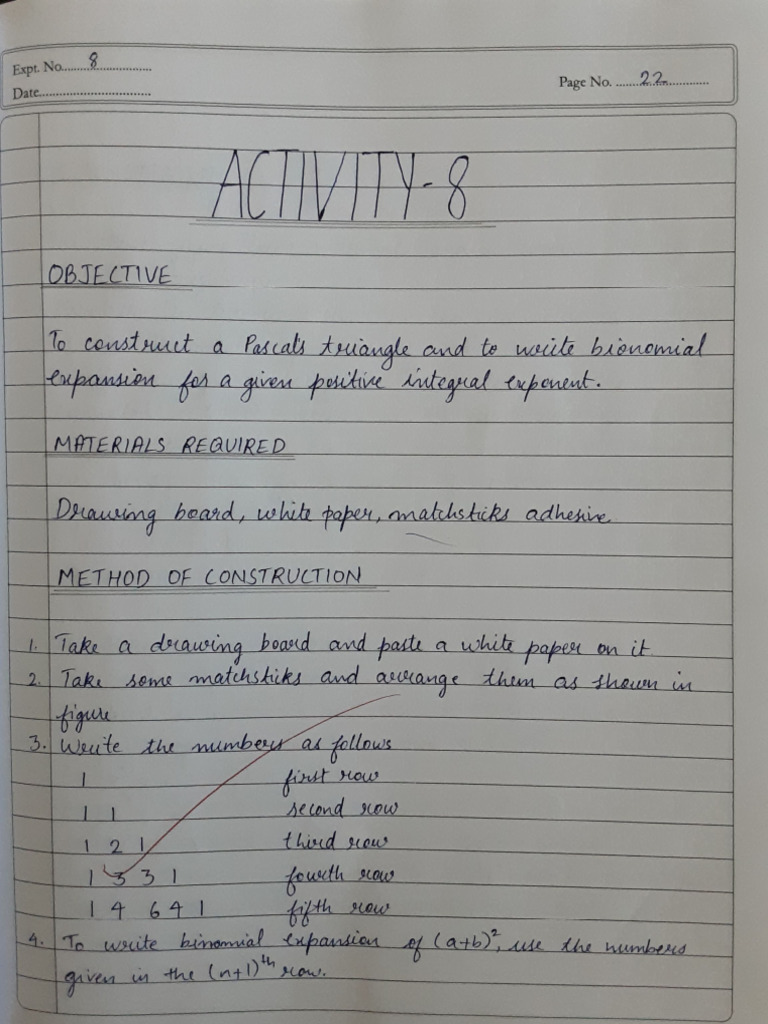 Expt. No. 8
Page No. 22
Date
ACTIVITY-8
OBJECTIVE
To construct a Pascal's triangle and to write bionomial
expansion for a given positive integral exponent.
MATERIALS REQUIRED
Drawing board, white paper, matchsticks adhesive.
METHOD OF CONSTRUCTION
1. Take a drawing board and paste a white paper on it
2. Take some matchsticks and arrange them as shown in
figure
3. Write the numbers as follows
1 first row
1 1 second row
1 2 1 third row
1 3 3 1 fourth row
1 4 6 4 1 fifth row
4. To write binomial expansion of (a+b)², use the numbers
given in the (n+1)th row.